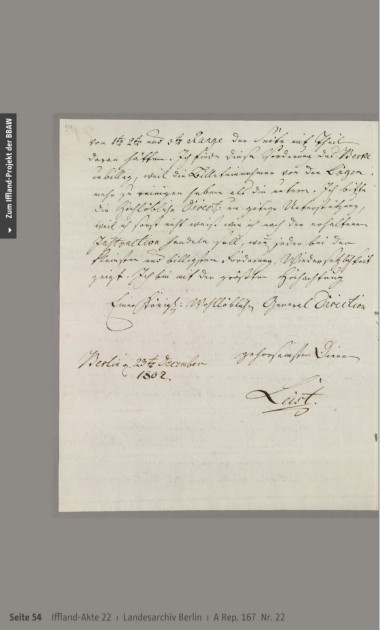 Zum Iffland-Projekt der BBAW
von 1t 2t und 3t Range der Seite mit Theil
daran hätten. Ich finde diese Forderung des
unbillig, weil die Billeteinnehmer von den Logen
mehr zu haben als die untern. Ich bitte
die Hochlöbliche Direct: um gütige Unterstützung,
weil ich sonst nicht weiß, wie ich nach der erhaltenen
Instruction handeln soll, wenn jeder bei der
kleinsten und billigsten Forderung, Widersetzlichkeit
zeigt. Ich bin mit der größten Hochachtung
Einer Königl: Wohllöblichen General Direction
Berlin d. 23t December
1802.
gehorsamster Diener
Leist.
Seite 54 Iffland-Akte 22 | Landesarchiv Berlin | A Rep. 167 Nr. 22